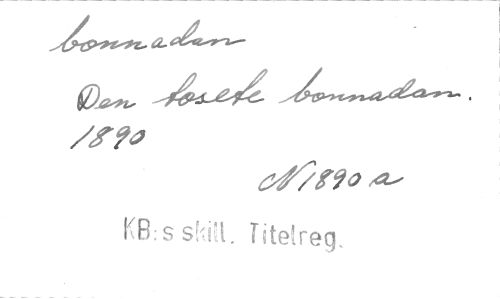 bonnadan
Den tosete bonnadan.
1890
N 1890 a
KB:s skill. Titelreg.